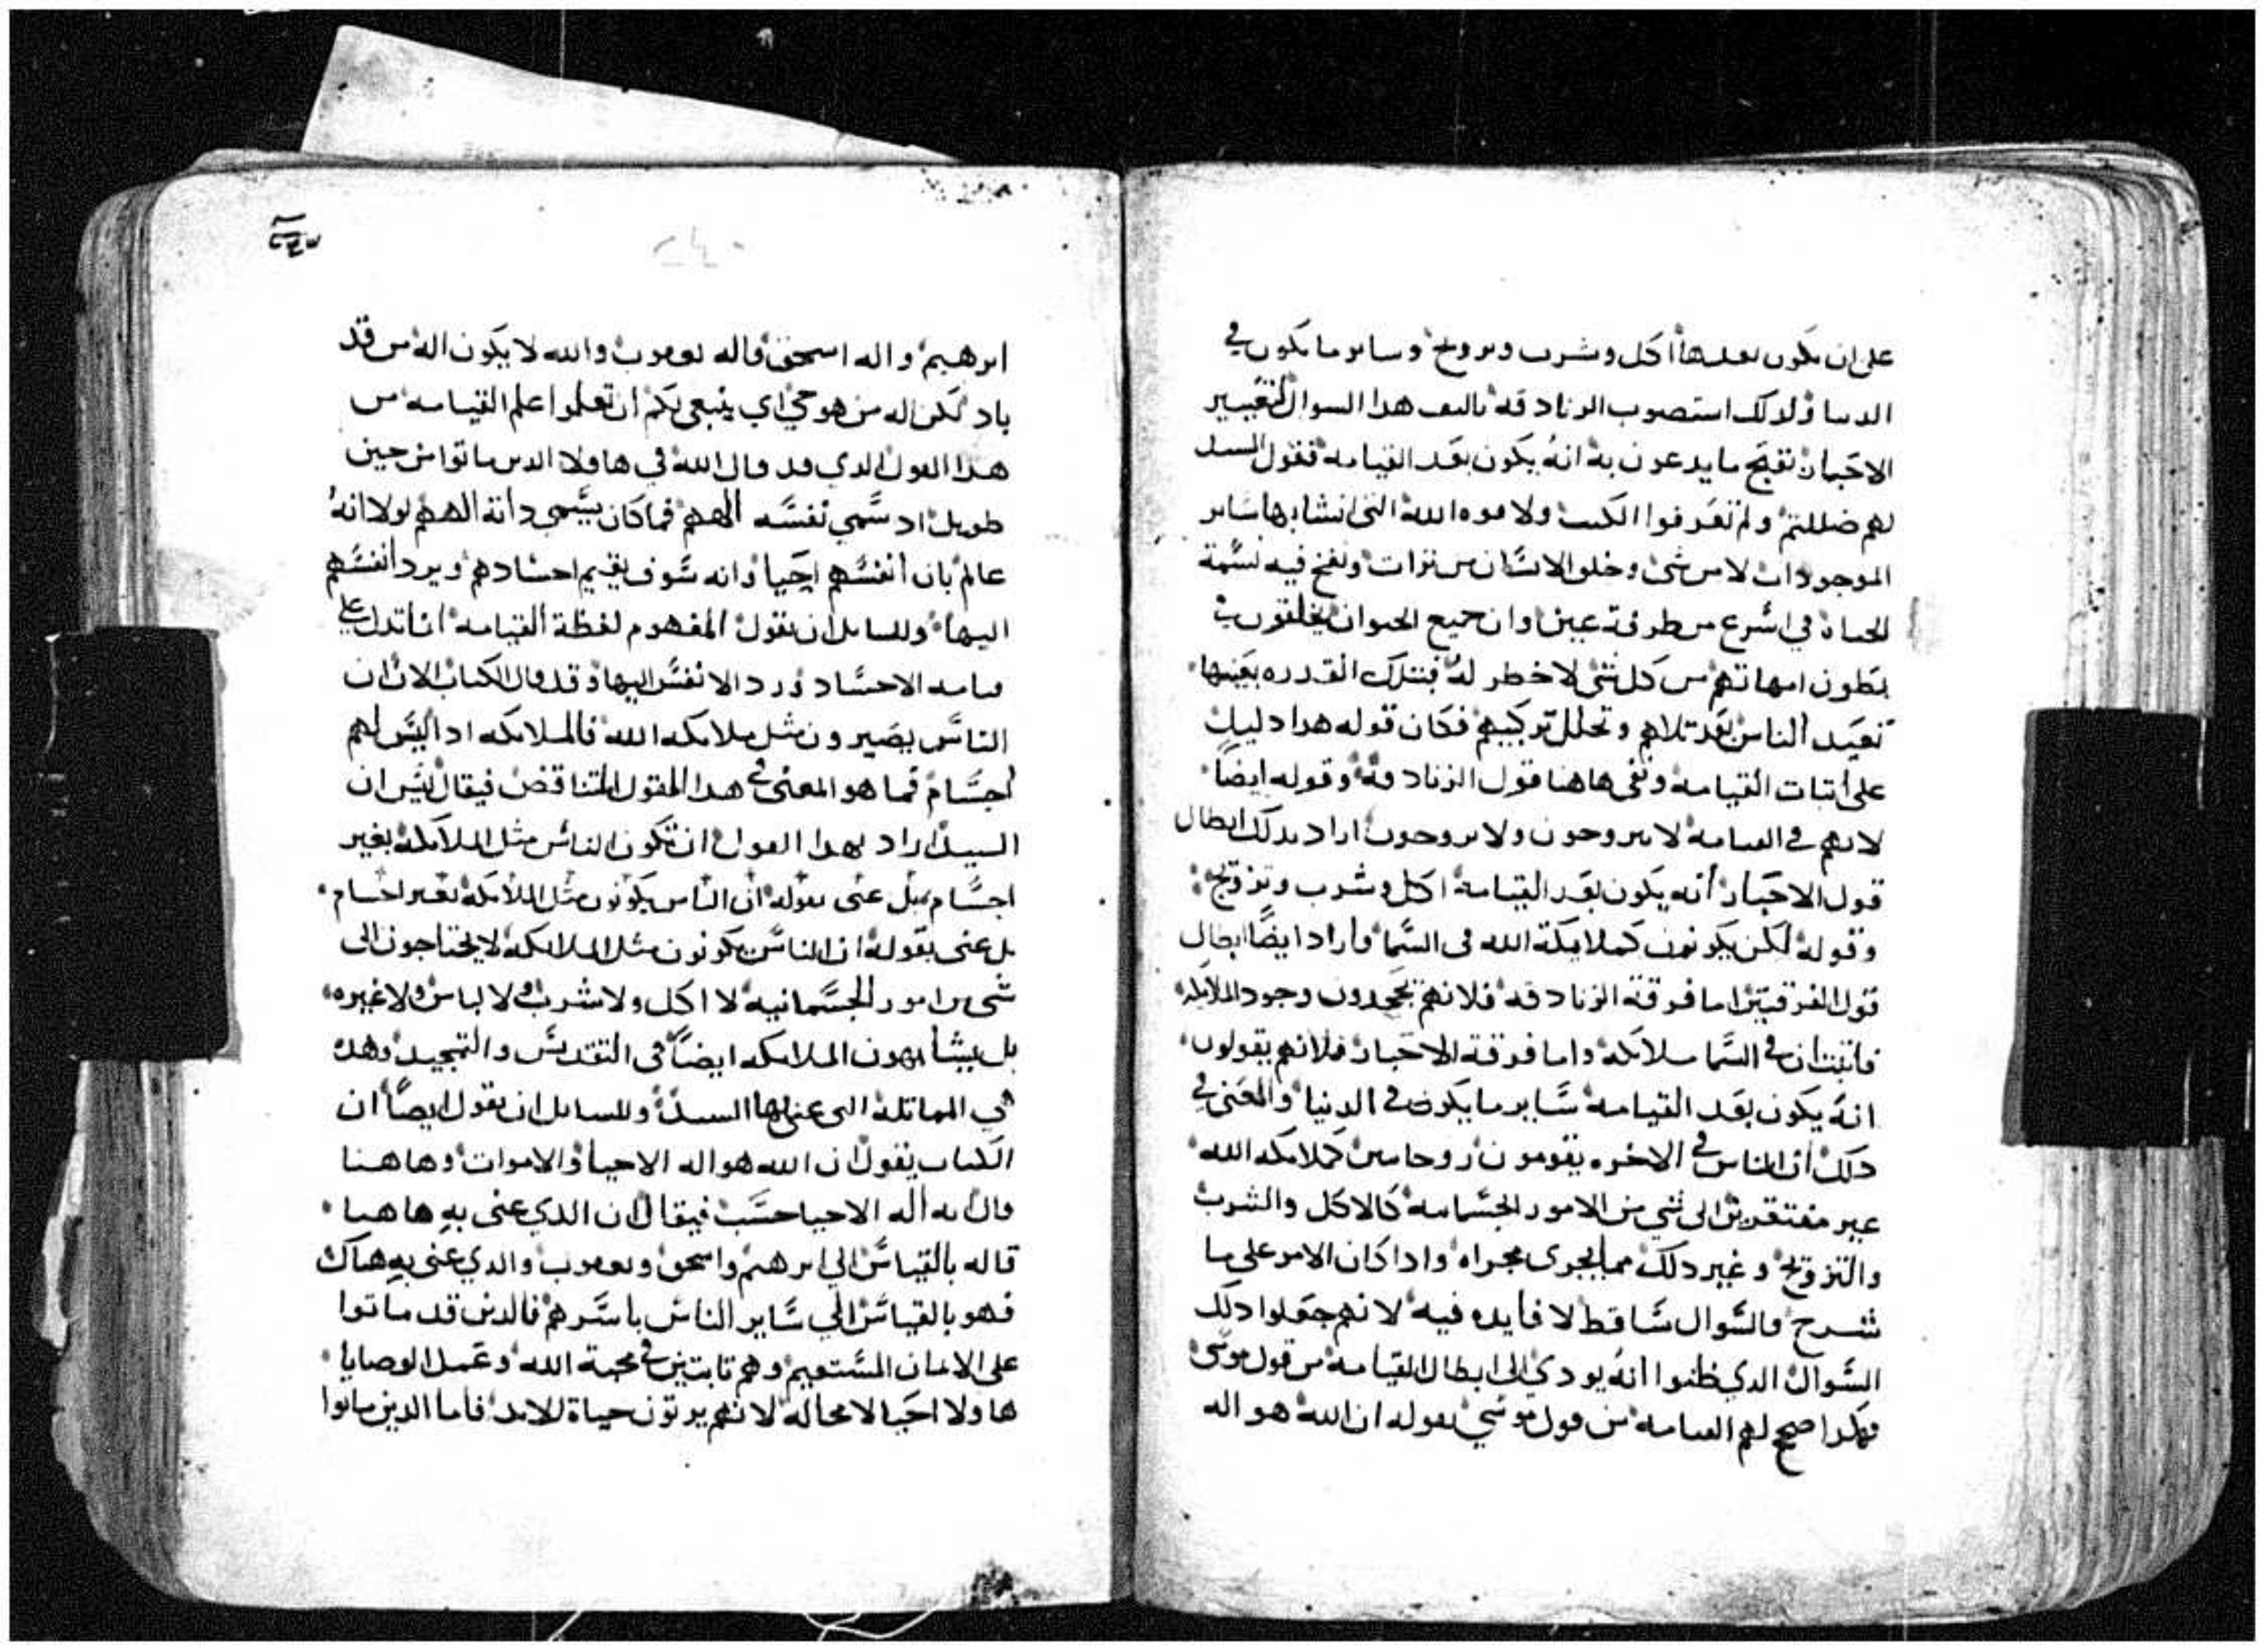 على ان يكون بعدها اكل وشرب وتزويج وساير ما يكون في
الدنيا ولدلك استصوب الزنادقه تاليف هدا السوال لتعيير
الاحبار بقبح ما يدعون به انه يكون بعد القيامه فقول السيد
لهم ضللتم ولم تعرفوا الكتب ولا قوه الله التي انشا بها ساير
الموجودات لا من شي وخلق الانسان من تراب ونفخ فيه نسمة
الحياة في اسرع من طرفة عين وان جميع الحيوان يخلقون في
بطون امهاتهم من كل شي لا خطر له فبتلك القدره بعينها
تعيد الناس بعد تلاهم وتحلل تركيبهم فكان قوله هدا دليل
على اتبات القيامه ونفى هاهنا قول الزنادقة وقوله ايضا
لانهم في القيامه لا يتزوجون ولا يزوجون اراد بدلك ابطال
قول الاحبار انه يكون بعد القيامة اكل وشرب وتزويج
وقوله لكن يكونون كملايكة الله في السما واراد ايضا ابطال
قول الفرقتين اما فرقة الزنادقه فلانهم يجحدون وجود الملايكه
فاتبت ان في السما ملايكه واما فرقة الاحبار فلانهم يقولون
انه يكون بعد القيامه ساير ما يكون في الدنيا والمعنى في
دلك ان الناس في الاخره يقومون روحانيين كملايكه الله
غير مفتقرين الى شي من الامور الجسمانيه كالاكل والشرب
والتزويج وغير دلك مما يجرى مجراه وادا كان الامر على ما
شرح فالسوال ساقط لا فايده فيه لانهم جعلوا دلك
السوال الدي ظنوا انه يودي الى ابطال القيامه من قول موسى
فهكدا صحح لهم القيامه من قول موسي بقوله ان الله هو اله
ابرهيم واله اسحق واله يعقوب والله لا يكون اله من قد
باد لكن اله من هو حي اي ينبغي لكم ان تعلموا علم القيامه من
هدا القول الدي قد قال الله في هاولا الدين ماتوا من حين
طويل اد سمي نفسه الههم فما كان يسمي داته الههم لولا انه
عالم بان انفسهم احيا وانه سوف يقيم احسادهم ويرد انفسهم
اليها وللسايل ان يقول المفهوم لفظة القيامه انما تدل على
قيامه الاحساد ورد الانفس اليها وقد قال الكتاب الان ان
الناس يصيرون مثل ملايكه الله فالملايكه اد اليس لهم
اجسام فما هو المعنى في هدا المقول المتناقض فيقال ليس ان
السيد اراد بهدا القول ان تكون الناس مثل الملايكة بغير
اجسام بل عنى بقوله ان الناس يكونون مثل الملايكة بغير اجسام
بل عنى بقوله ان الناس يكونون مثل الملايكه لا يحتاجون الى
شي من امور الجسمانيه لا اكل ولا شرب ولا لباس ولا غيره
بل يشابهون الملايكه ايضا في التقديس والتمجيد وهده
هي المماتلة التي عنى بها السيد وللسايل ان يقول ايضا ان
الكتاب يقول ان الله هو اله الاحيا والاموات وهاهنا
قال انه اله الاحيا حسب فيقال ان الدي عنى به هاهنا
قاله بالقياس الي ابرهيم واسحق ويعقوب والدي عنى به هناك
فهو بالقياس الي ساير الناس باسرهم فالدين قد ماتوا
على الايمان المستقيم وهم تابتين في محبة الله وعمل الوصايا
هاولا احيا لا محاله لانهم يرتون حياة للابد فاما الدين ماتوا